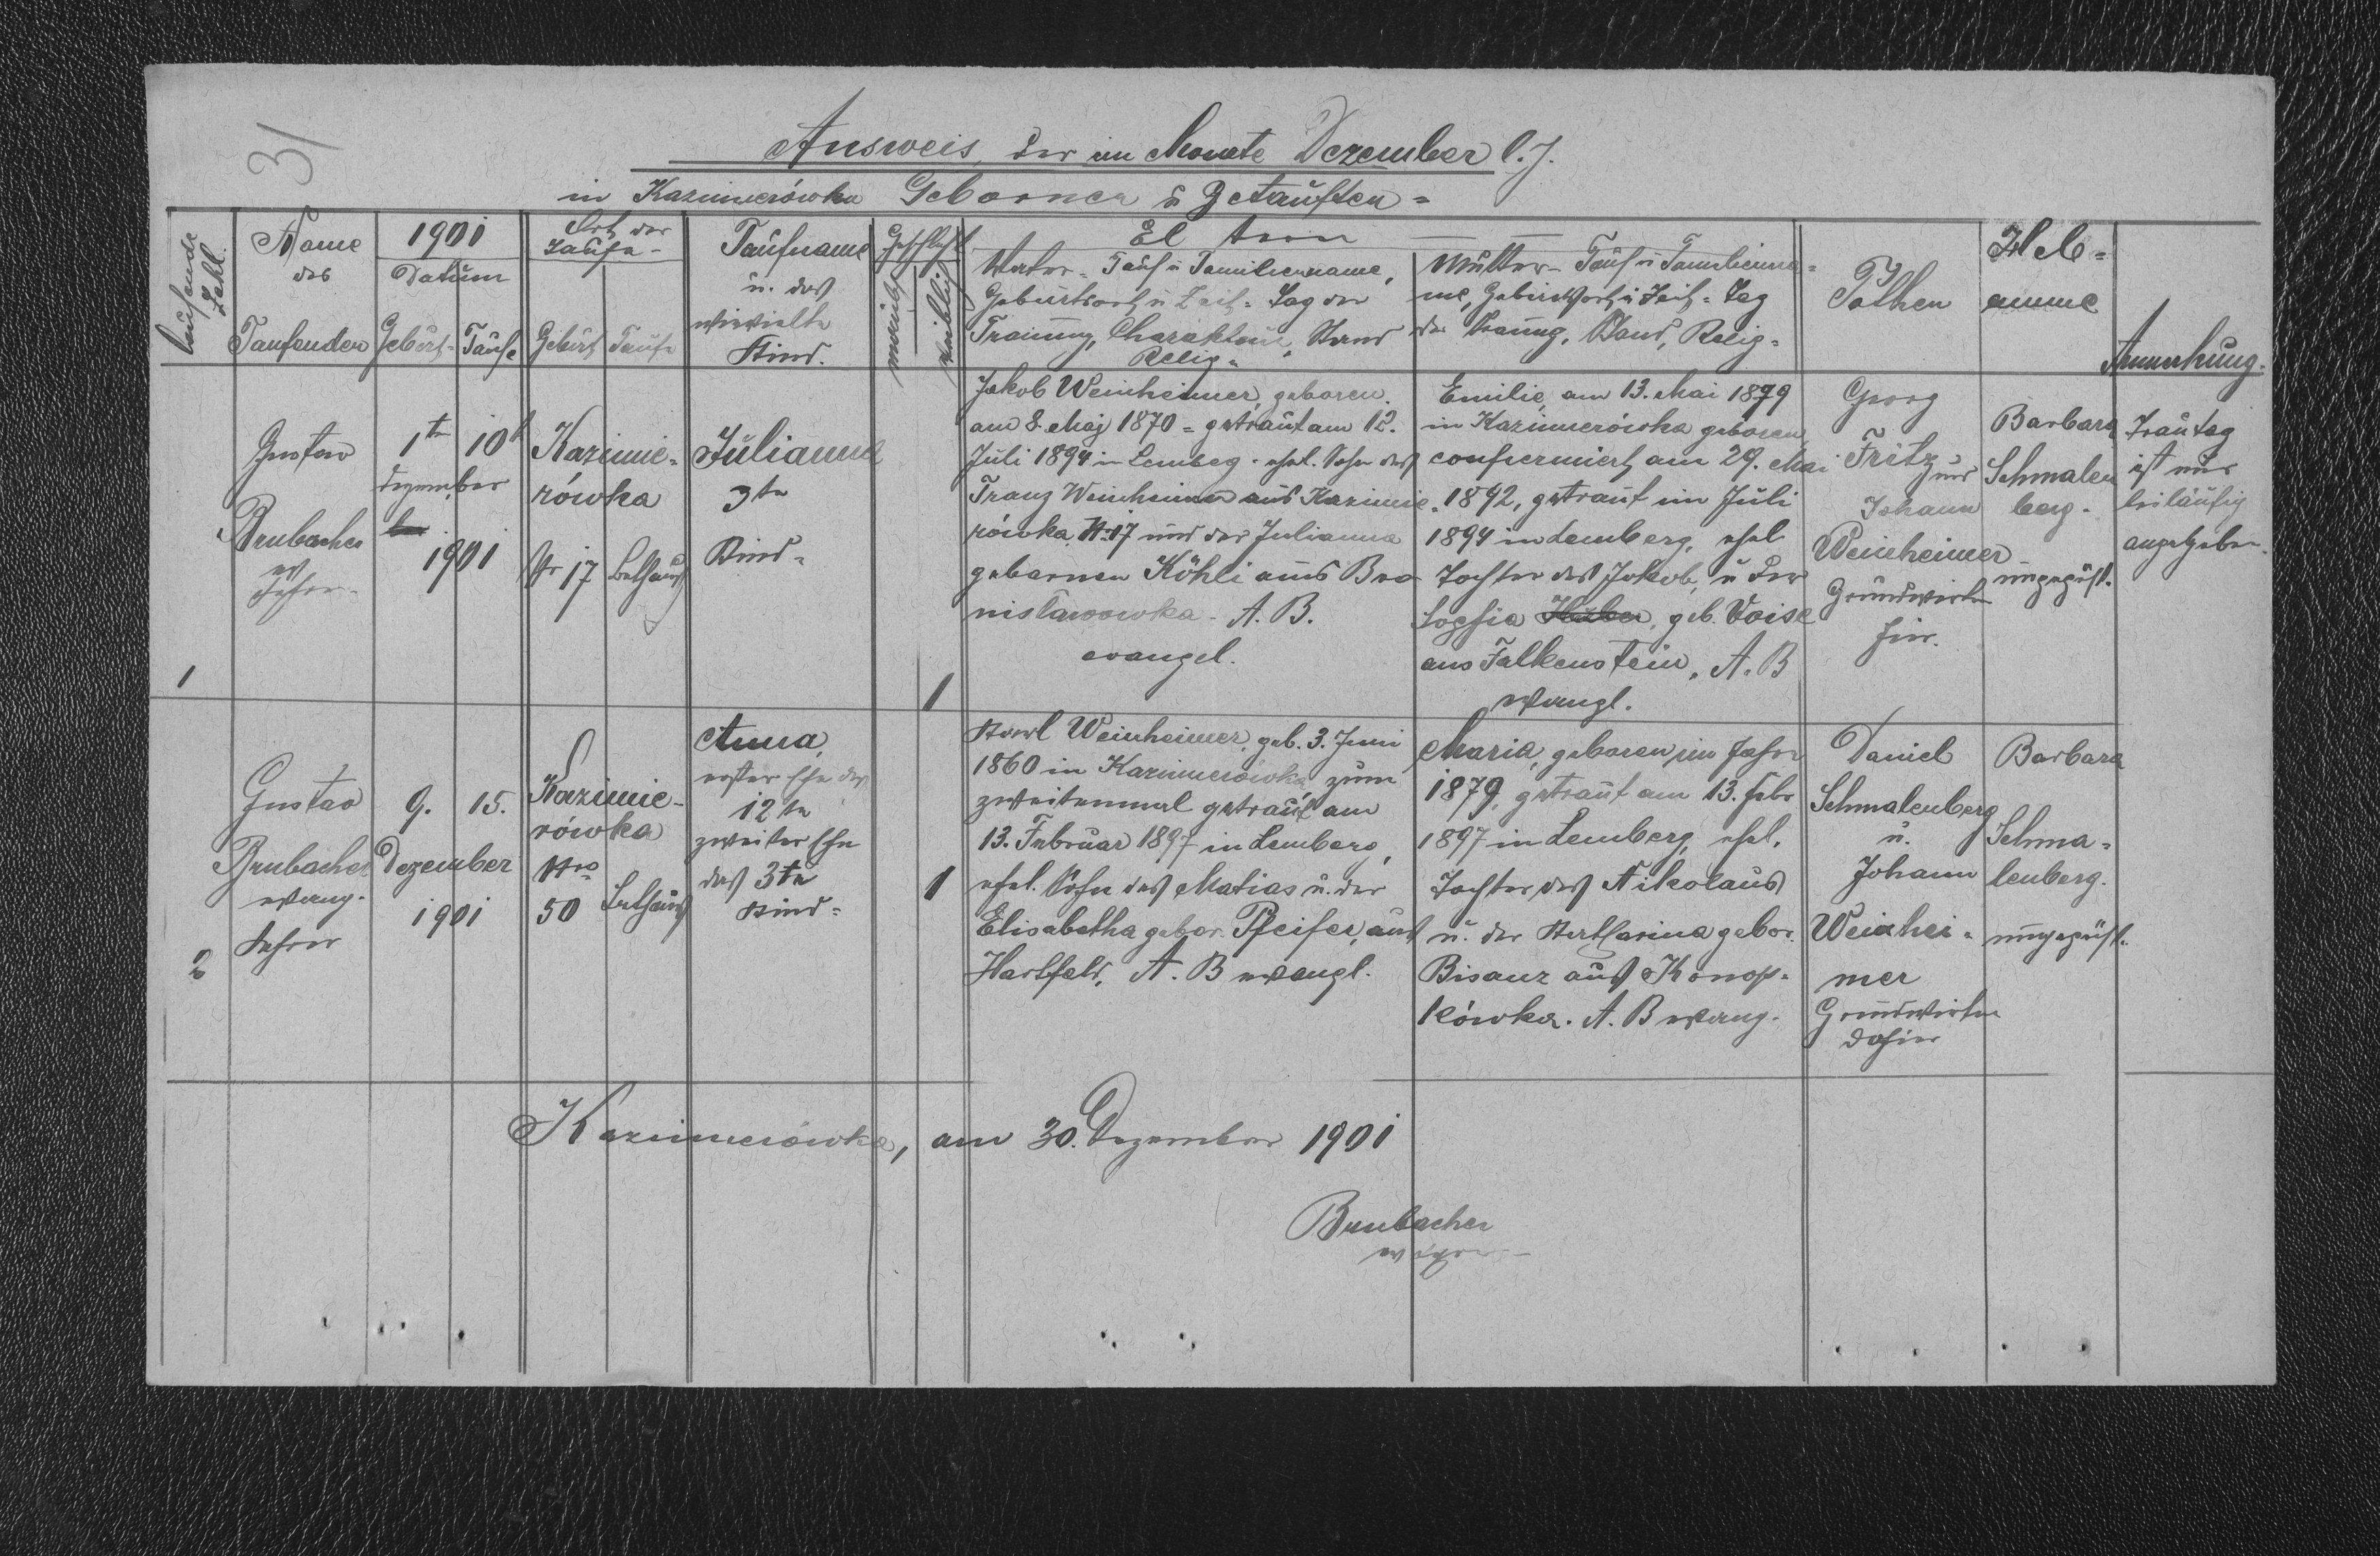 31
Ausweis der im Monate Dezember l. J.
in Kazimierówka Geborner u Getauften =
laufende Zahl.
Name
des
Taufenden
1901
Datum
Geburt-
Taufe
Ort der
Taufe -
Geburt
Taufe
Taufname
u. das
wievielte
Kind.
Geschlecht
männlich
weiblich
El tern
Vater = Tauf u Familienname,
Geburtsort u Zeit = Tag der
Trauung, Charakter, Stand
Relig =
Mutter = Tauf u Familienna=
me, Geburtsort u Zeit = Tag
der Trauung, Stand, Relig =
Pathen
Heb =
amme
Anmerkung.
1
Gustav
Brubacher
ev
Lehrer.
1te
10te
Dezember
1901
Kazimie=
rówka
Nr 17
Bethaus
Julianna
3te
Kind =
1
Jakob Weinheimer, geboren
am 8. Maj 1870 = getraut am 12.
Juli 1894 in Lemberg. ehel. Sohn des
Franz Weinheimer aus Kazimie=
rówka Nr 17 und der Julianna
gebornen Köhli aus Bro
nislawowka. A. B.
evangel.
Emilie, am 13. Mai 1879
in Kazimierówka geboren,
confirmiert am 29. Mai
1892, getraut im Juli
1894 in Lemberg, ehel
Tochter des Jakob, u der
Sophia Huber, geb. Voise
aus Falkenstein, A. B
evangl.
Georg
Fritz und
Johann
Weinheimer
Grundwirte
hier.
Barbara
Schmalen
berg -
ungeprüft.
Trautag
ist nur
beiläufig
angegeben.
2
Gustav
Brubacher
evang.
Lehrer
9.
15.
Dezember
1901
Kazimie=
rówka
Nro
50
Bethaus
Anna,
erster Ehe das
12te
zweiter Ehe
das 3te
Kind =
1
Karl Weinheimer, geb. 3. Juni
1860 in Kazimierówka, zum
zweitenmal getraut am
13. Februar 1897 in Lemberg,
ehel. Sohn des Matias u. der
Elisabetha gebor. Pfeifer, aus
Hartfeld, A. B evangl.
Maria, geboren im Jahre
1879, getraut am 13. Febr
1897 in Lemberg, ehel.
Tochter des Nikolaus
u. der Katharina gebor.
Bisanz aus Konop=
kówka. A. B evang.
Daniel
Schmalenberg
u.
Johann
Weinhei=
mer
Grundwirte
dahier
Barbara
Schma=
lenberg.
ungeprüft.
Kazimierówka, am 30. Dezember 1901
Brubacher